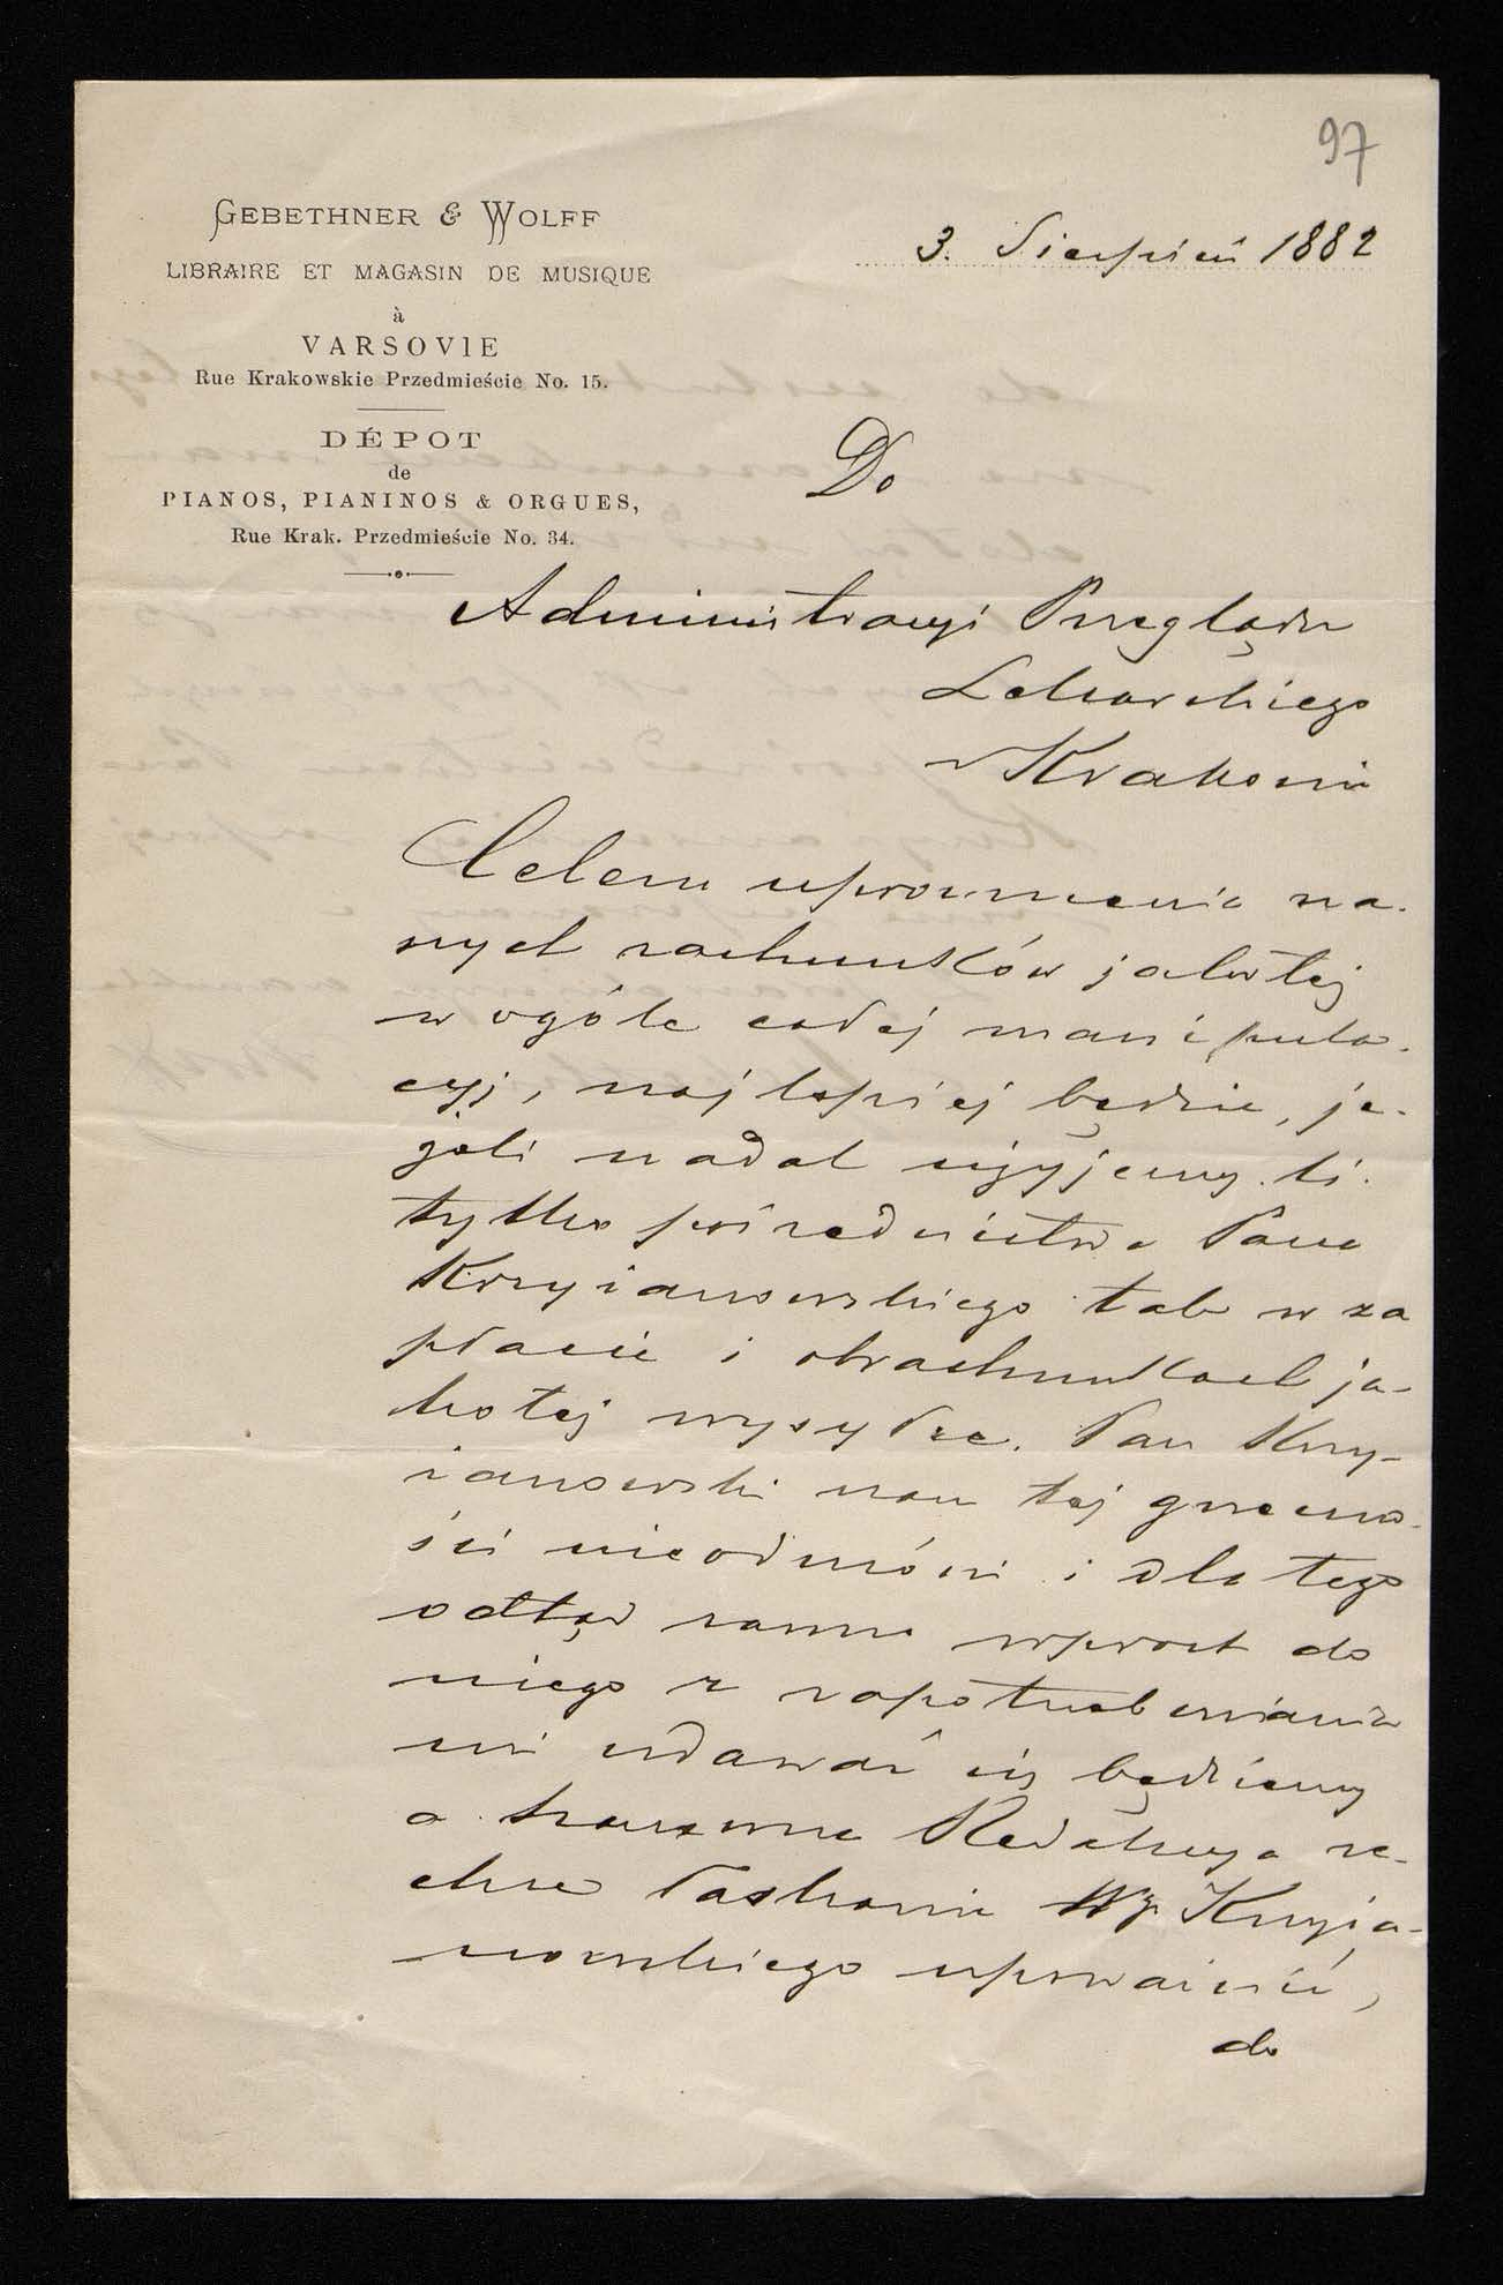 97
GEBETHNER & WOLFF
LIBRAIRE ET MAGASIN DE MUSIQUE
à
VARSOVIE
Rue Krakowskie Przedmieście No. 15.
DÉPOT
de
PIANOS, PIANINOS & ORGUES,
Rue Krak. Przedmieście No. 34.
3. Sierpień 1882
Do
Administracyi Przeglądu
Lekarskiego
w Krakowie
Celem uproszczenia na-
szych rachunków jakotéj
w ogóle całéj manipula-
cyj, najlepiej będzie, je-
żeli nadal użyjemy li
tylko pośrednictwa Pana
Krzyżanowskiego tak w za
płacie i obrachunkach ja-
kotej wysyłce. Pan Krzy-
żanowski nam tej grzeczno-
ści nieodmówi i dla tego
odtąd zawsze wprost do
niego z zapotrzebowania
mi udawać się będziemy
a Szanowna Redakcya ze-
chce łaskawie Wgo Krzyża-
nowskiego upoważnić,
do